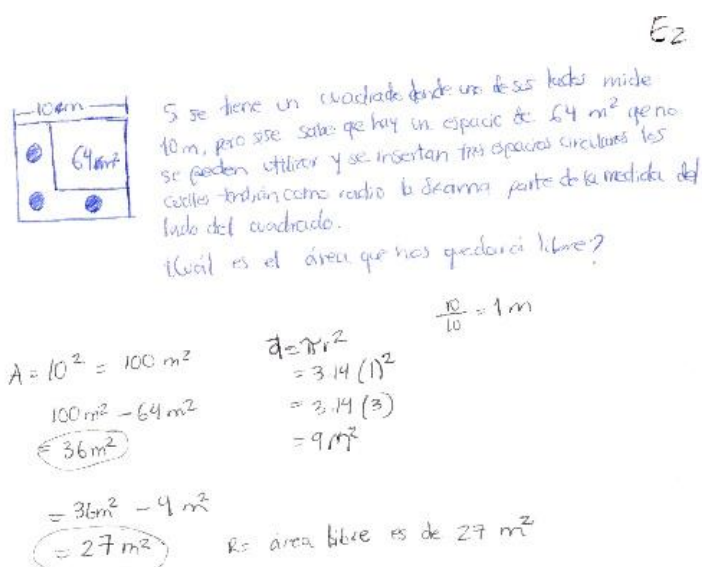 E2
10m
64m²
S se tiene un cuadrado donde uno de sus lados mide
10m, pero se sabe qe hay un espacio de 64 m² qe no
se pueden utilizar y se insertan tres espacios circulares los
cuales tendrán como radio la décima parte de la medida del
lado del cuadrado.
¿Cuál es el área que nos quedará libre?
10/10 = 1 m
A = 10² = 100 m²
100 m² - 64 m²
= 36 m²
a = πr²
= 3.14 (1)²
= 3.14 (3)
= 9 m²
= 36m² - 9 m²
= 27 m²
R= área libre es de 27 m²